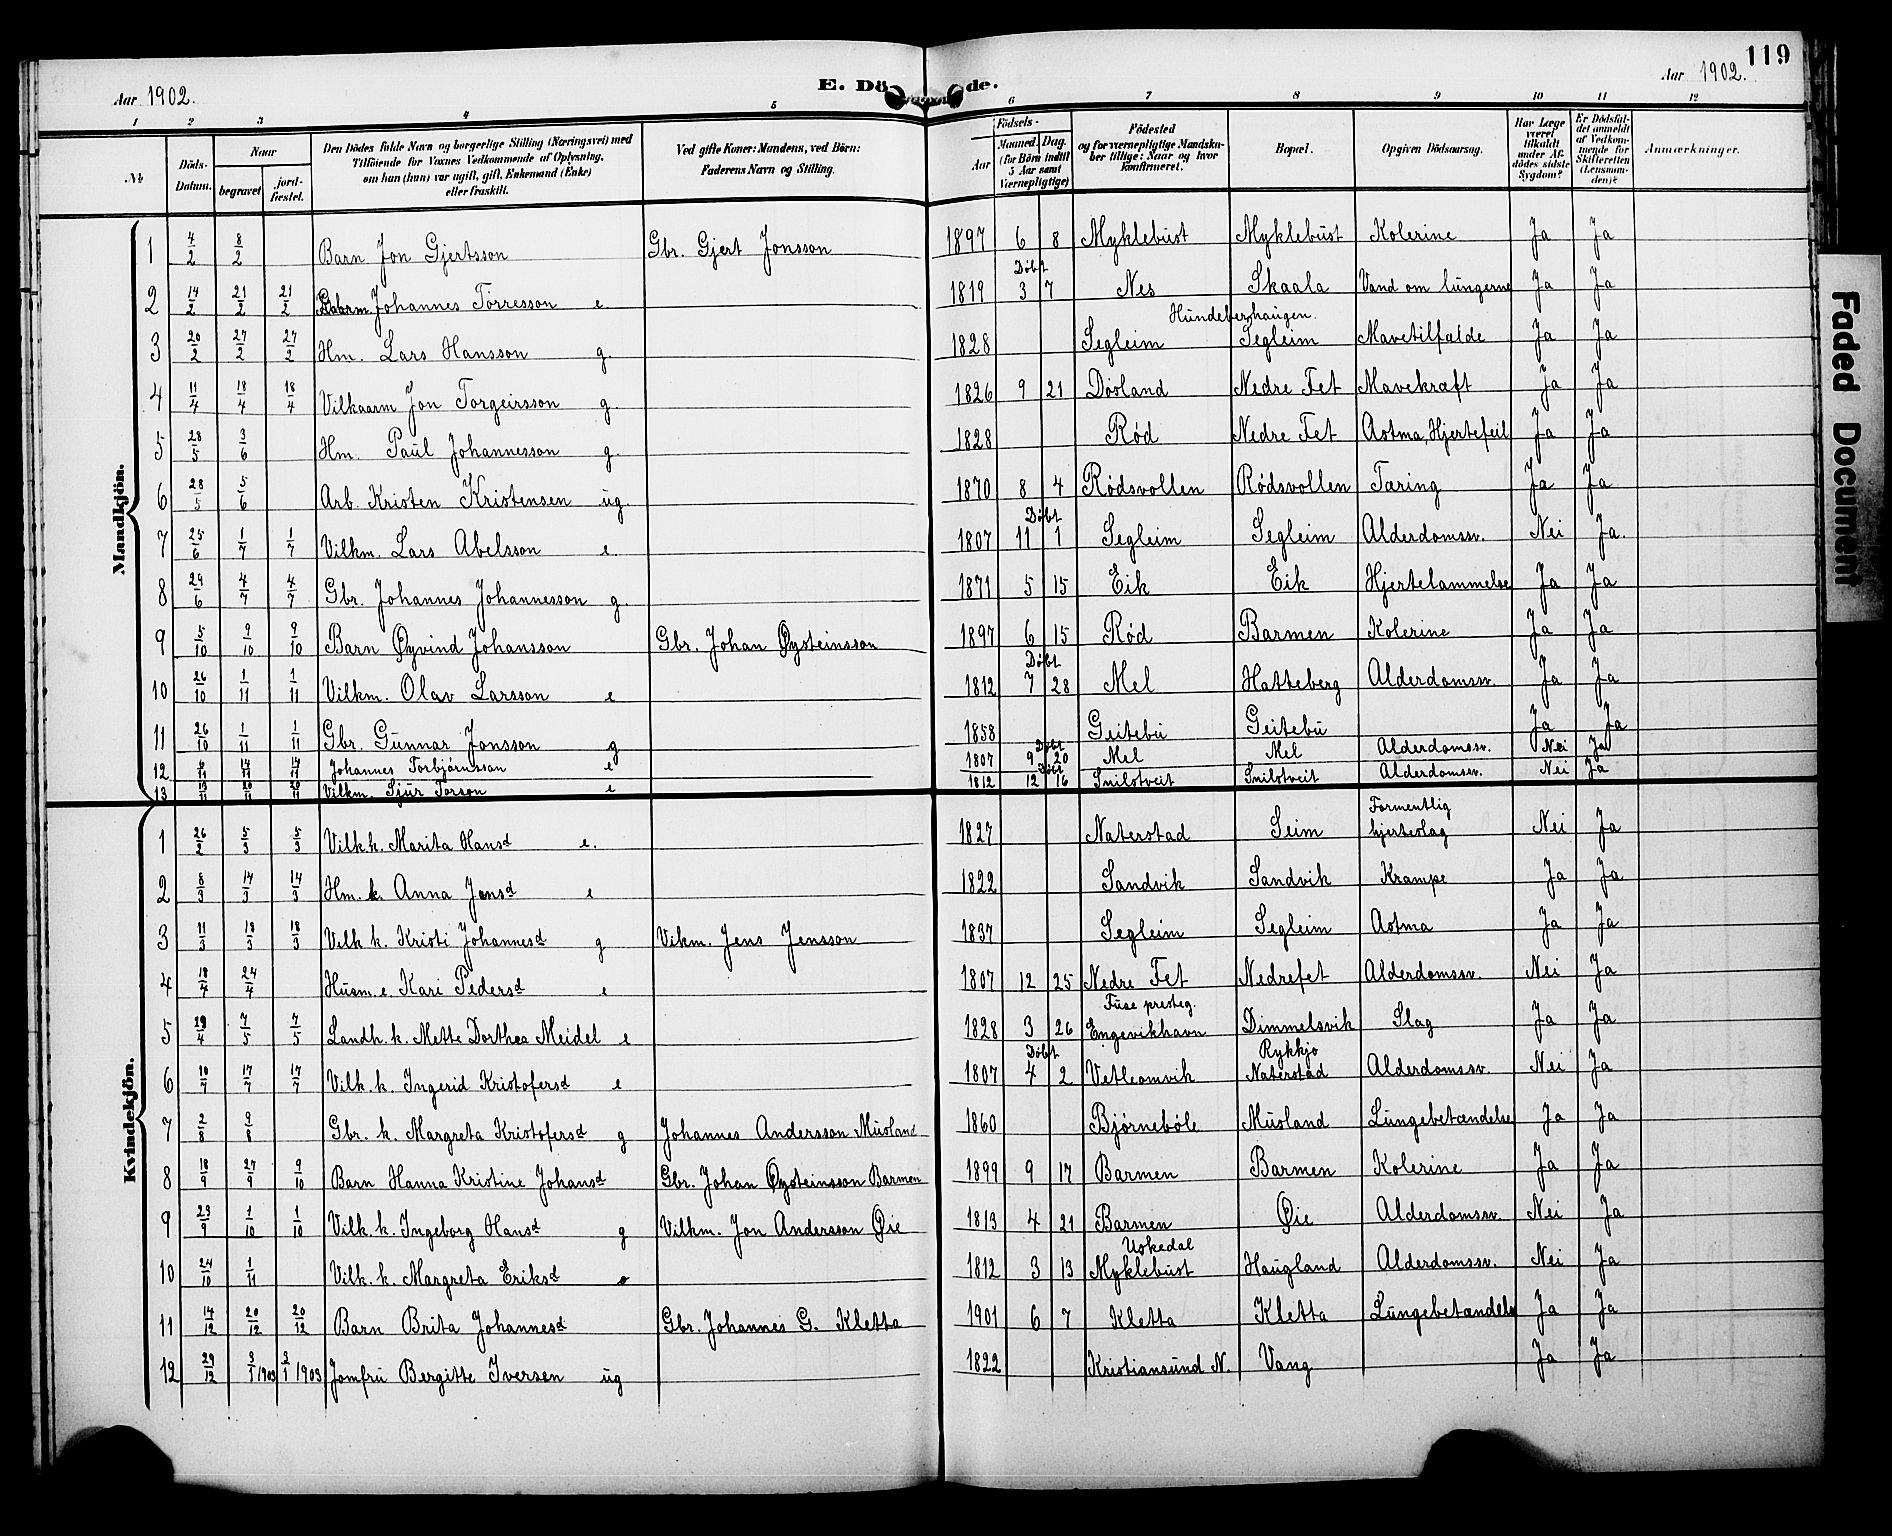 119
Aar 1902.
E. Dö de.
Aar 1902.
1 2 3 4 5 6 7 8 9 10 11 12
№
Döds-Datum.
Naar
begravet
jord-fæstet.
Den Dödes fulde Navn og borgerlige Stilling (Næringsvei) med Tilföiende for Voxnes Vedkommende af Oplysning, om han (hun) var ugift, gift, Enkemand (Enke) eller fraskilt.
Ved gifte Koner: Mandens, ved Börn: Faderens Navn og Stilling.
Födsels-
Aar
Maaned. Dag.
(for Börn indtil 5 Aar samt Værnepligtige)
Födested og for værnepligtige Mandskaber tillige: Naar og hvor konfirmeret.
Bopæl.
Opgiven Dödsaarsag.
Har Læge været tilkaldt under Afdödes sidste Sygdom?
Er Dödsfaldet anmeldt af Vedkommende for Skifteretten (Lensmanden)?
Anmærkninger.
Mandkjön.
1 4/2 8/2 Barn Jon Gjertsson Gbr. Gjert Jonsson 1897 6 8 Myklebust Myklebust Kolerine Ja Ja
2 14/2 21/2 21/2 Johannes Torresson e Döbt 1819 3 7 Nes Skaala Vand om lungerne Ja Ja
3 20/2 27/2 27/2 Hm. Lars Hansson g. 1828 Segleim Hundebershaugen Segleim Mavetilfælde Ja Ja
4 11/4 18/4 18/4 Vilkaarm Jon Torgeirsson g. 1826 9 21 Døsland Nedre Fet Mavekræft Ja Ja
5 28/5 3/6 Hm. Paul Johannesson g. 1828 Rød Nedre Fet Astma, Hjertefeil Ja Ja
6 28/5 5/6 Arb. Kristen Kristensen ug. 1870 8 4 Rødsvollen Rødsvollen Tæring Ja Ja
7 25/6 1/7 1/7 Vilkm. Lars Abelsson e. Döbt 1807 11 1 Segleim Segleim Alderdomssv. Nei Ja.
8 29/6 4/7 4/7 Gbr. Johannes Johannesson g. 1871 5 15 Eik Eik Hjertelammelse Ja Ja
9 5/10 9/10 9/10 Barn Øyvind Johansson Gbr. Johan Øysteinsson 1897 6 15 Rød Barmen Kolerine Ja Ja
10 26/10 1/11 1/11 Vilkm. Olav Larsson e Döbt 1812 7 28 Mel Hatteberg Alderdomssv. Ja Ja
11 26/10 1/11 1/11 Gbr. Gunnar Jonsson g 1858 Geitebu Geitebu Ja Ja
12 14/11 14/11 Johannes Torbjørnsson e Döbt 1807 9 20 Mel Mel Alderdomssv. Nei Ja
13 13/11 20/11 20/11 Vilkm. Sjur Torson e Döbt 1812 12 16 Snilstveit Snilstveit Alderdomssv. Nei Ja
Kvindekjön.
1 26/2 5/3 5/3 Vilk k. Marita Hansd e. 1827 Naterstad Seim Formentlig hjerteslag Nei Ja
2 8/3 14/3 14/3 Hm. k. Anna Jonsd e 1822 Sandvik Sandvik Krampe Ja Ja
3 11/3 18/3 18/3 Vilk k. Kristi Johannesd g Vikm. Jens Jensson 1837 Segleim Segleim Astma Ja Ja
4 18/4 24/4 Husm. e. Kari Pedersd e 1807 12 25 Nedre Fet Nedrefet Alderdomssv. Nei Ja
5 29/4 7/5 7/5 Landh. k. Mette Dorthea Meidel e 1828 3 26 Fuse presteg. Engevikhavn Dimmelsvik Slag Ja Ja
6 10/7 17/7 17/7 Vilk. k. Ingerid Kristofersd e Döbt 1807 4 2 Vetleomvik Rykkjo Naterstad Alderdomssv. Nei Ja
7 2/8 9/8 Gbr. k. Margreta Kristofersd g Johannes Andersson Musland 1860 Bjørnebøle Musland Lungebetændelse Ja Ja
8 18/9 27/9 9/10 Barn Hanna Kristine Johansd Gbr. Johan Øysteinsson Barmen 1899 9 17 Barmen Barmen Kolerine Ja Ja
9 23/9 1/10 1/10 Vilk. k. Ingeborg Hansd g Vilkm. Jon Andersson Øie 1813 4 21 Barmen Øie Alderdomssv. Nei Ja
10 24/10 1/11 Vilk. k. Margreta Eriksd e 1812 3 13 Uskedal Myklebust Haugland Alderdomssv. Nei Ja
11 14/12 20/12 20/12 Barn Brita Johannesd Gbr. Johannes G. Kletta 1901 6 7 Kletta Kletta Lungebetændelse Ja Ja
12 29/12 3/1 1903 3/1 1903 Jomfru Bergitte Iversen ug 1822 Kristiansund N. Vang Ja Ja
Faded Document